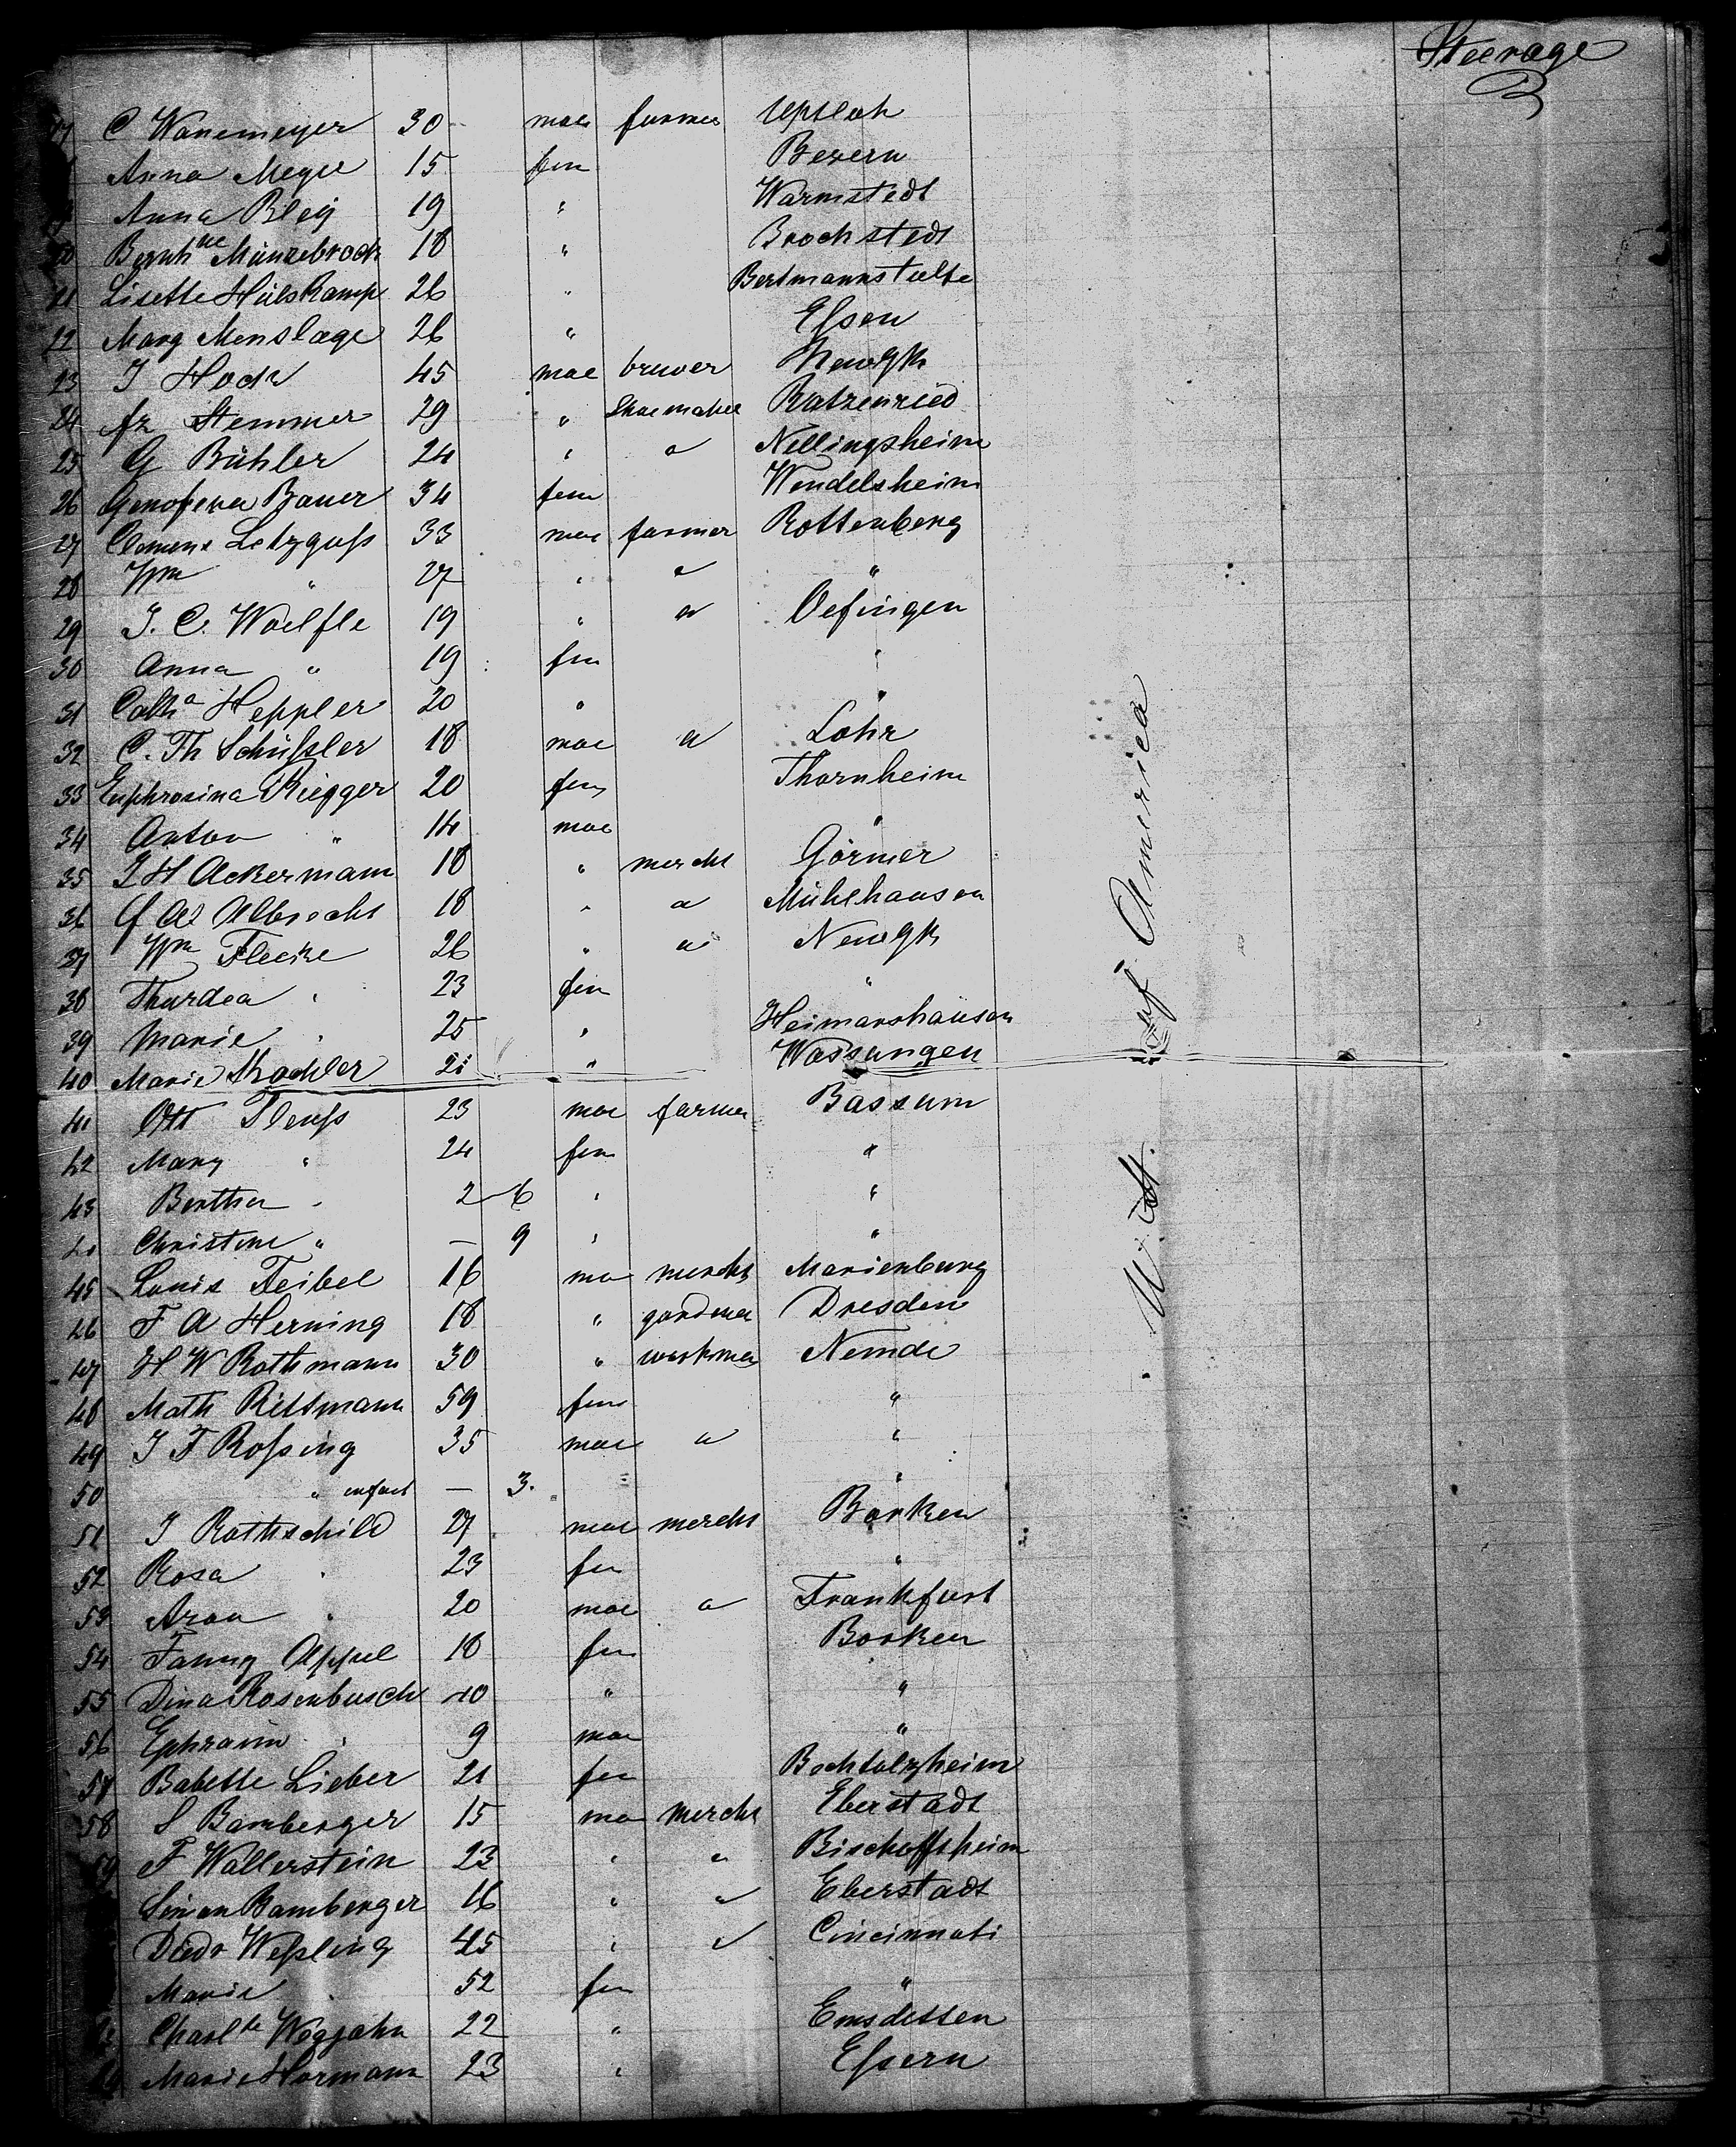 Steerage
17 C Wanemeyer 30 mae farmer Upsloh
Anna Meyer 15 fem Bevern
Anna Bley 19 " Warmstedt
20 Bernh ne Münzebrock 18 " Brochstedt
21 Lisette Hülskamp 26 "
22 Marg Menslage 26 " Essen
23 J Hock 45 mae bruver NewYk
24 Fr Stemmer 29 " Shoemaker Ratzenried
25 G Bühler 24 " " Nellingsheim
26 Genofeva Bauer 34 fem Wendelsheim
27 Clemens Letzguss 33 mae farmer Rottenberg
28 Wm " 27 " " "
29 J. C. Woelfle 19 " " Oefingen
30 Anna " 19 fem "
31 Cath a Heppler 20 " "
32 C. Th Schüssler 18 mae " Lohr
33 Euphrosina Riegger 20 fem Thornheim
34 Anton " 14 mae "
35 J H Ackermann 18 " mercht Görmer
36 Albrecht 18 " " Mühlhausen
37 Wm Flecke 26 " " NewYk
38 " 23 fem "
39 Marie " 25 " Heimarshausen
40 Marie Kochler 21 " Wassungen
41 Ott 23 mae farmer Bassum
42 Marg " 24 fem "
43 Bertha " 2 6 " "
Christine " — 9 " "
45 Louis Feibel 16 ma mercht Marienburg
46 F A Herning 18 " gardner Dresden
47 H W Rothmann 30 " workman Nemde
48 Math Rittmann 59 fem "
49 J F Rossing 35 mae " "
50 " infant — 3. "
51 J Rothschild 27 mae mercht Borken
52 Rosa " 23 fem "
53 Aron " 20 mae " Frankfurt
54 Fanny Appel 18 fem Borken
55 Dina Rosenbusch 10 " "
56 Ephraim " 9 mae "
57 Babette Lieber 21 fem Bechtolzheim
58 S Bamberger 15 ma mercht Eberstadt
59 F Wallerstein 23 " " Bischoffsheim
Simon Bamberger 16 " " Eberstadt
Diedr Wessling 45 " " Cincinnati
Marie " 52 fem "
Charl te Wegjahn 22 " Emsdetten
Marie Hormann 23 " Essern
U. St. of America